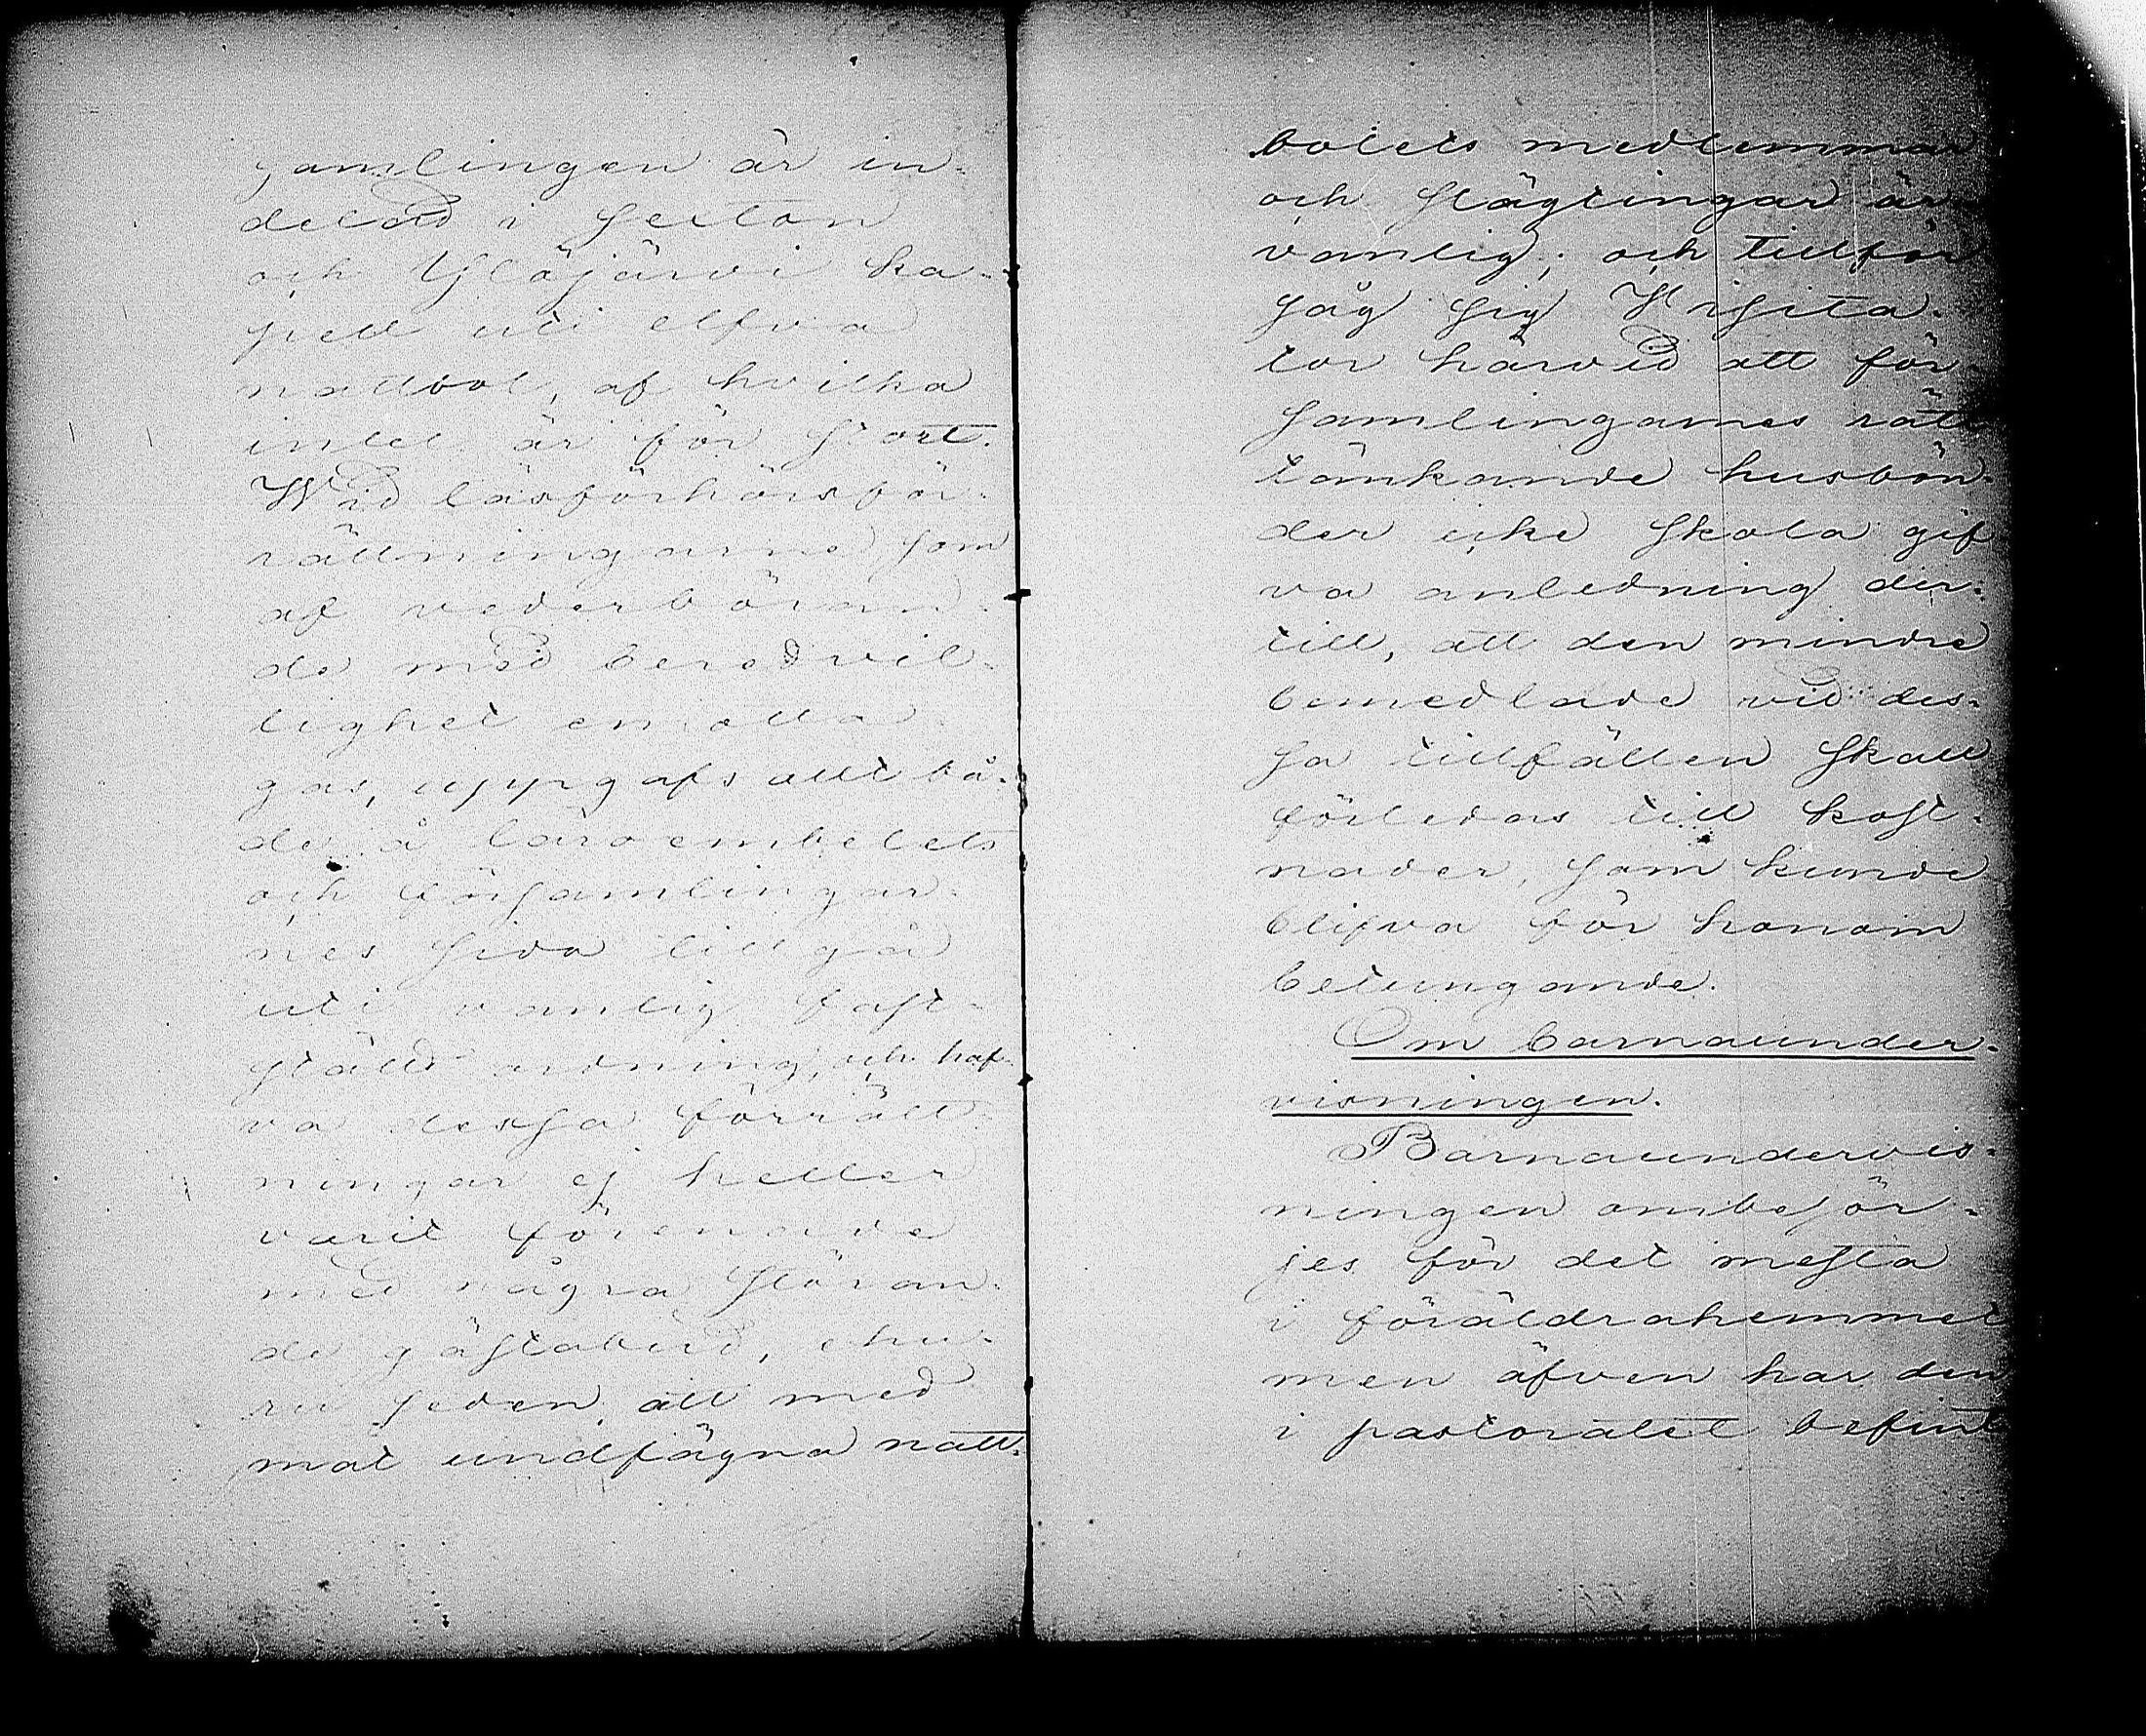 samlingen är in-
delad i sexton
och Ylöjärvi ka-
pell uti elfva
nattvol, af hvilka
intet är för stort.
Wid läsförhörsför-
rättningarne som
af vederböran-
de med beredvil-
lighet emotta-
gas, uppgafs allt bå-
de å läroembetets
och församlingar-
nes sida tillgå
uti vanlig fast-
ställd ordning, och haf-
va dessa förrätt-
ningar ej heller
varit förenade
med några störan-
de gästabud, ehu-
ru seden att med
mat undfägna natt-
volets medlemmar
och slägtingar är
vanlig; och tillför-
såg sig Visita-
tor härvid att för-
samlingarnes rätt
tänkande husbön-
der icke skola gif
va anledning der-
till, att den mindre
bemedlade vid des-
sa tillfällen skall
förledas till kost-
nader, som kunde
blifva för honom
betungande.
Om barnaunder-
visningen.
Barnaundervis-
ningen ombesör-
jes för det mesta
i föräldrahemmet
men äfven har den
i pastoratet befint